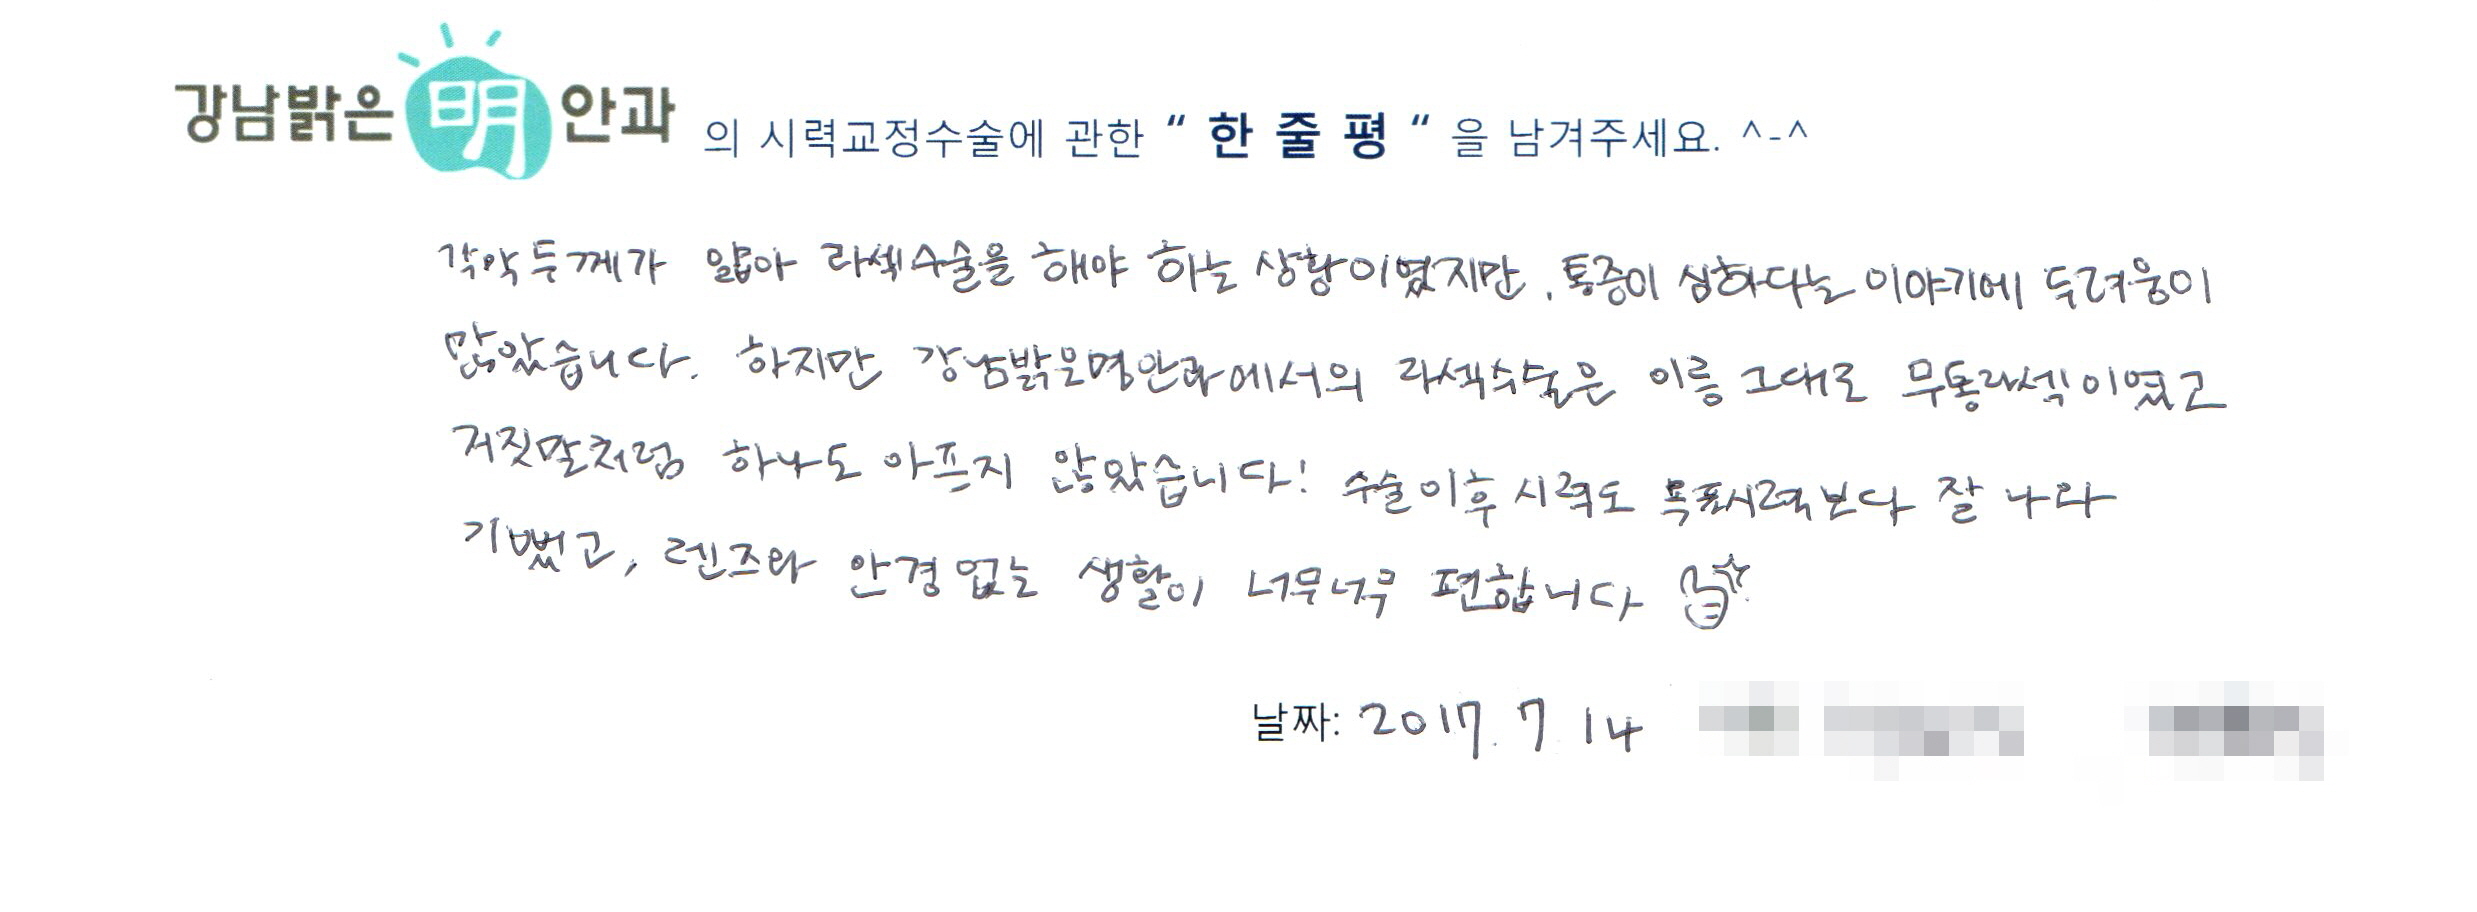 강남밝은明안과 의 시력교정수술에 관한 “ 한 줄 평 “ 을 남겨주세요. ^-^
각막두께가 얇아 라섹수술을 해야 하는 상황이였지만, 통증이 심하다는 이야기에 두려움이
많았습니다. 하지만 강남밝은명안과에서의 라섹수술은 이름 그대로 무통라섹이였고
거짓말처럼 하나도 아프지 않았습니다! 수술이후 시력도 목표시력보다 잘 나와
기뻤고, 렌즈와 안경없는 생활이 너무너무 편합니다
날짜: 2017. 7 14